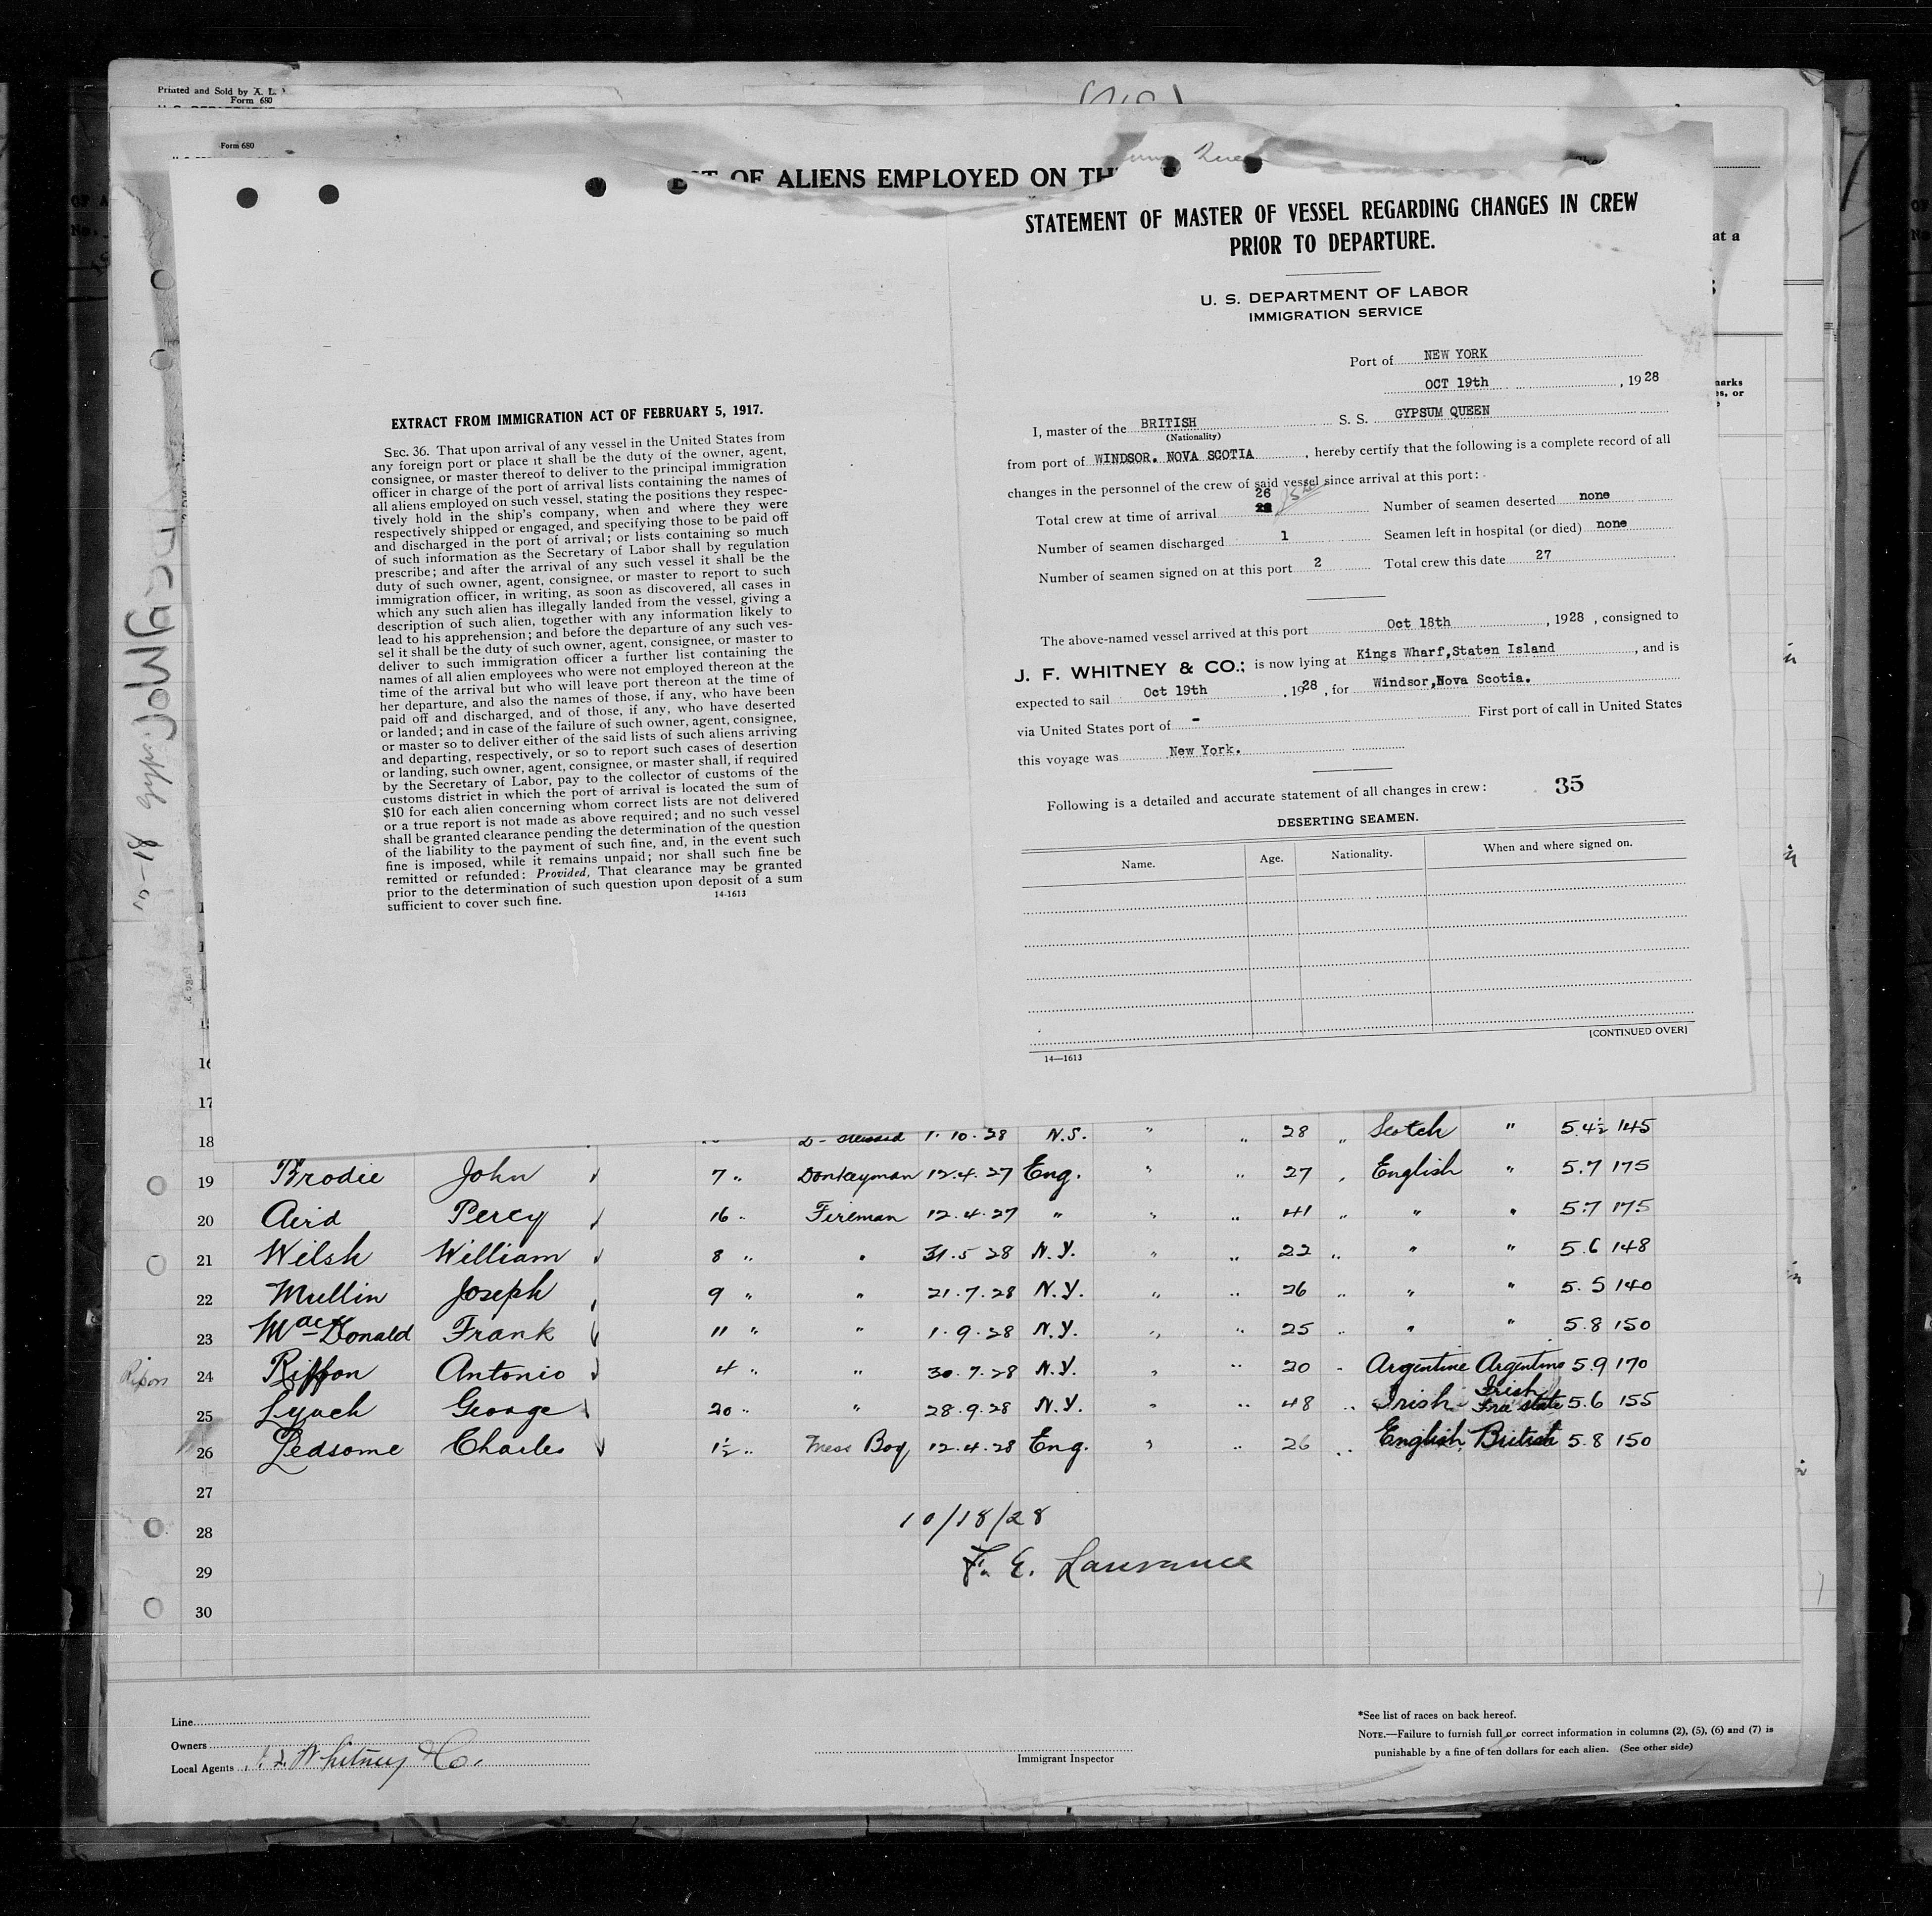 Printed and Sold by A. L.
Form 680
Form 680
OF ALIENS EMPLOYED ON TH
EXTRACT FROM IMMIGRATION ACT OF FEBRUARY 5, 1917.
SEC. 36. That upon arrival of any vessel in the United States from
any foreign port or place it shall be the duty of the owner, agent,
consignee, or master thereof to deliver to the principal immigration
officer in charge of the port of arrival lists containing the names of
all aliens employed on such vessel, stating the positions they respec-
tively hold in the ship's company, when and where they were
respectively shipped or engaged, and specifying those to be paid off
and discharged in the port of arrival; or lists containing so much
of such information as the Secretary of Labor shall by regulation
prescribe; and after the arrival of any such vessel it shall be the
duty of such owner, agent, consignee, or master to report to such
immigration officer, in writing, as soon as discovered, all cases in
which any such alien has illegally landed from the vessel, giving a
description of such alien, together with any information likely to
lead to his apprehension; and before the departure of any such ves-
sel it shall be the duty of such owner, agent, consignee, or master to
deliver to such immigration officer a further list containing the
names of all alien employees who were not employed thereon at the
time of the arrival but who will leave port thereon at the time of
her departure, and also the names of those, if any, who have been
paid off and discharged, and of those, if any, who have deserted
or landed; and in case of the failure of such owner, agent, consignee,
or master so to deliver either of the said lists of such aliens arriving
and departing, respectively, or so to report such cases of desertion
or landing, such owner, agent, consignee, or master shall, if required
by the Secretary of Labor, pay to the collector of customs of the
customs district in which the port of arrival is located the sum of
$10 for each alien concerning whom correct lists are not delivered
or a true report is not made as above required; and no such vessel
shall be granted clearance pending the determination of the question
of the liability to the payment of such fine, and, in the event such
fine is imposed, while it remains unpaid; nor shall such fine be
remitted or refunded: Provided, That clearance may be granted
prior to the determination of such question upon deposit of a sum
sufficient to cover such fine.
14-1613
STATEMENT OF MASTER OF VESSEL REGARDING CHANGES IN CREW
PRIOR TO DEPARTURE.
U. S. DEPARTMENT OF LABOR
IMMIGRATION SERVICE
Port of NEW YORK
OCT 19th, 1928
I, master of the BRITISH S. S. GYPSUM QUEEN
(Nationality)
from port of WINDSOR. NOVA SCOTIA, hereby certify that the following is a complete record of all
changes in the personnel of the crew of said vessel since arrival at this port:
Total crew at time of arrival 26 Number of seamen deserted none
Number of seamen discharged 1 Seamen left in hospital (or died) none
Number of seamen signed on at this port 2 Total crew this date 27
The above-named vessel arrived at this port Oct 18th, 1928, consigned to
J. F. WHITNEY & CO.; is now lying at Kings Wharf,Staten Island, and is
expected to sail Oct 19th, 1928, for Windsor,Nova Scotia.
via United States port of - First port of call in United States
this voyage was New York.
Following is a detailed and accurate statement of all changes in crew: 35
DESERTING SEAMEN.
Name. Age. Nationality. When and where signed on.
[CONTINUED OVER]
14—1613
16
17
18 1.10.28 N.S. " " 28 " Scotch " 5.4½ 145
19 Brodie John 7 " Donkeyman 12.4.27 Eng. " " 27 " English " 5.7 175
20 Aird Percy 16 " Fireman 12.4.27 " " " 41 " " " 5.7 175
21 Wilsh William 8 " " 31.5.28 N.Y. " " 22 " " " 5.6 148
22 Mullin Joseph 9 " " 21.7.28 N.Y. " " 26 " " " 5.5 140
23 MacDonald Frank 11 " " 1.9.28 N.Y. " " 25 " " " 5.8 150
Ripon 24 Riffon Antonio 4 " " 30.7.28 N.Y. " " 20 " Argentine Argentine 5.9 170
25 Lynch George 20 " " 28.9.28 N.Y. " " 48 " Irish Irish Free State 5.6 155
26 Ledsome Charles 1½ " Mess Boy 12.4.28 Eng. " " 26 " English British 5.8 150
27
28
29
30
10/18/28
F. E. Lawrance
Line
Owners
Local Agents J. F. Whitney & Co.
Immigrant Inspector
*See list of races on back hereof.
NOTE.—Failure to furnish full or correct information in columns (2), (5), (6) and (7) is
punishable by a fine of ten dollars for each alien. (See other side)